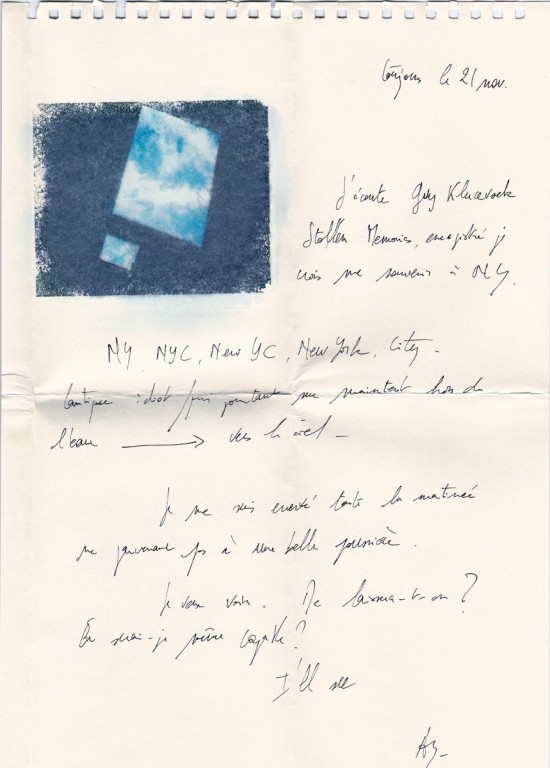 toujours le 21 nov.
J'écoute Guy Klucevsek
Stollen Memories, enregistré j
crois me souvenir à NY.
NY, NYC, New YC, New York, City -
idiot me maintient hors de
l'eau → vers le ciel -
Je me suis énervé toute la matinée
ne parvenant pas à une belle poussière.
Je veux voir. Me laissera-t-on ?
En serai-je même capable ?
I'll see